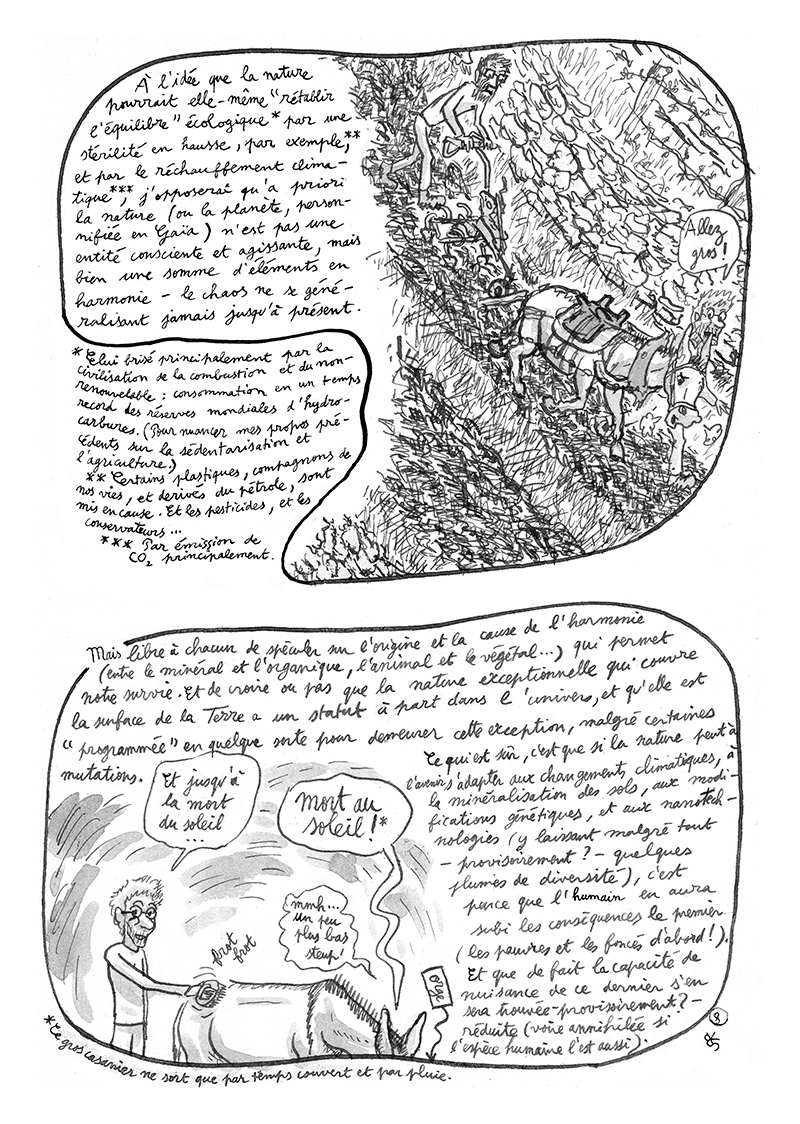 À l'idée que la nature
pourrait elle-même "rétablir
l'équilibre" écologique* par une
stérilité en hausse, par exemple,**
et par le réchauffement clima-
tique***, j'opposerai qu'a priori
la nature (ou la planète, person-
nifiée en Gaïa) n'est pas une
entité consciente et agissante, mais
bien une somme d'éléments en
harmonie – le chaos ne se géné-
ralisant jamais jusqu'à présent.
Allez
gros !
* Celui brisé principalement par la
civilisation de la combustion et du non-
renouvelable : consommation en un temps
record des réserves mondiales d'hydro-
carbures. (Pour nuancer mes propos pré-
cédents sur la sédentarisation et
l'agriculture.)
** Certains plastiques, compagnons de
nos vies, et dérivés du pétrole, sont
mis en cause. Et les pesticides, et les
conservateurs ...
*** Par émission de
CO2 principalement.
Mais libre à chacun de spéculer sur l'origine et la cause de l'harmonie
(entre le minéral et l'organique, l'animal et le végétal...) qui permet
notre survie. Et de croire ou pas que la nature exceptionnelle qui couvre
la surface de la Terre a un statut à part dans l'univers, et qu'elle est
"programmée" en quelque sorte pour demeurer cette exception, malgré certaines
mutations.
Ce qui est sûr, c'est que si la nature peut à
l'avenir s'adapter aux changements climatiques, à
la minéralisation des sols, aux modi-
fications génétiques, et aux nanotech-
nologies (y laissant malgré tout
– provisoirement ? – quelques
plumes de diversité), c'est
parce que l'humain en aura
subi les conséquences le premier
(les pauvres et les foncés d'abord !).
Et que de fait la capacité de
nuisance de ce dernier s'en
sera trouvée – provisoirement ? –
réduite (voire annihilée si
l'espèce humaine l'est aussi).
Et jusqu'à
la mort
du soleil
...
Mort au
soleil !*
mmh...
un peu
plus bas
steup !
frot
frot
orge
* Ce gros casanier ne sort que par temps couvert et par pluie.
8